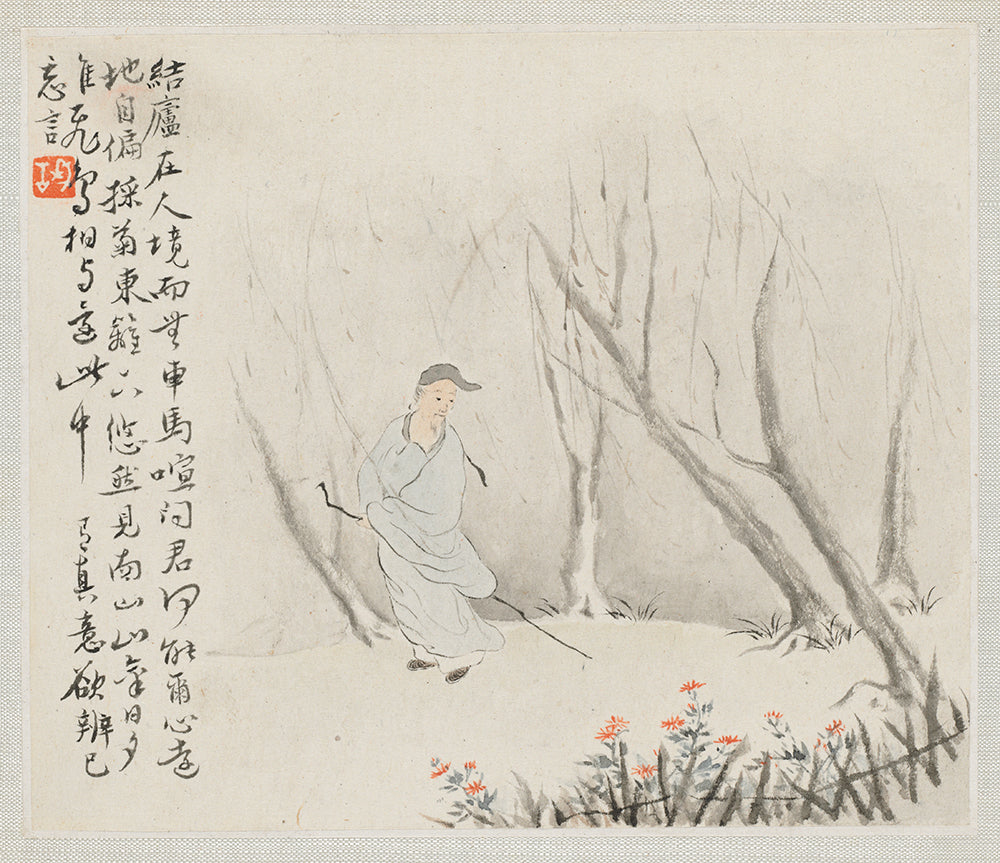 結廬在人境而無車馬喧問君何能爾心遠
地自偏採菊東籬下悠然見南山山氣日夕
佳飛鳥相与還此中有真意欲辨已
忘言